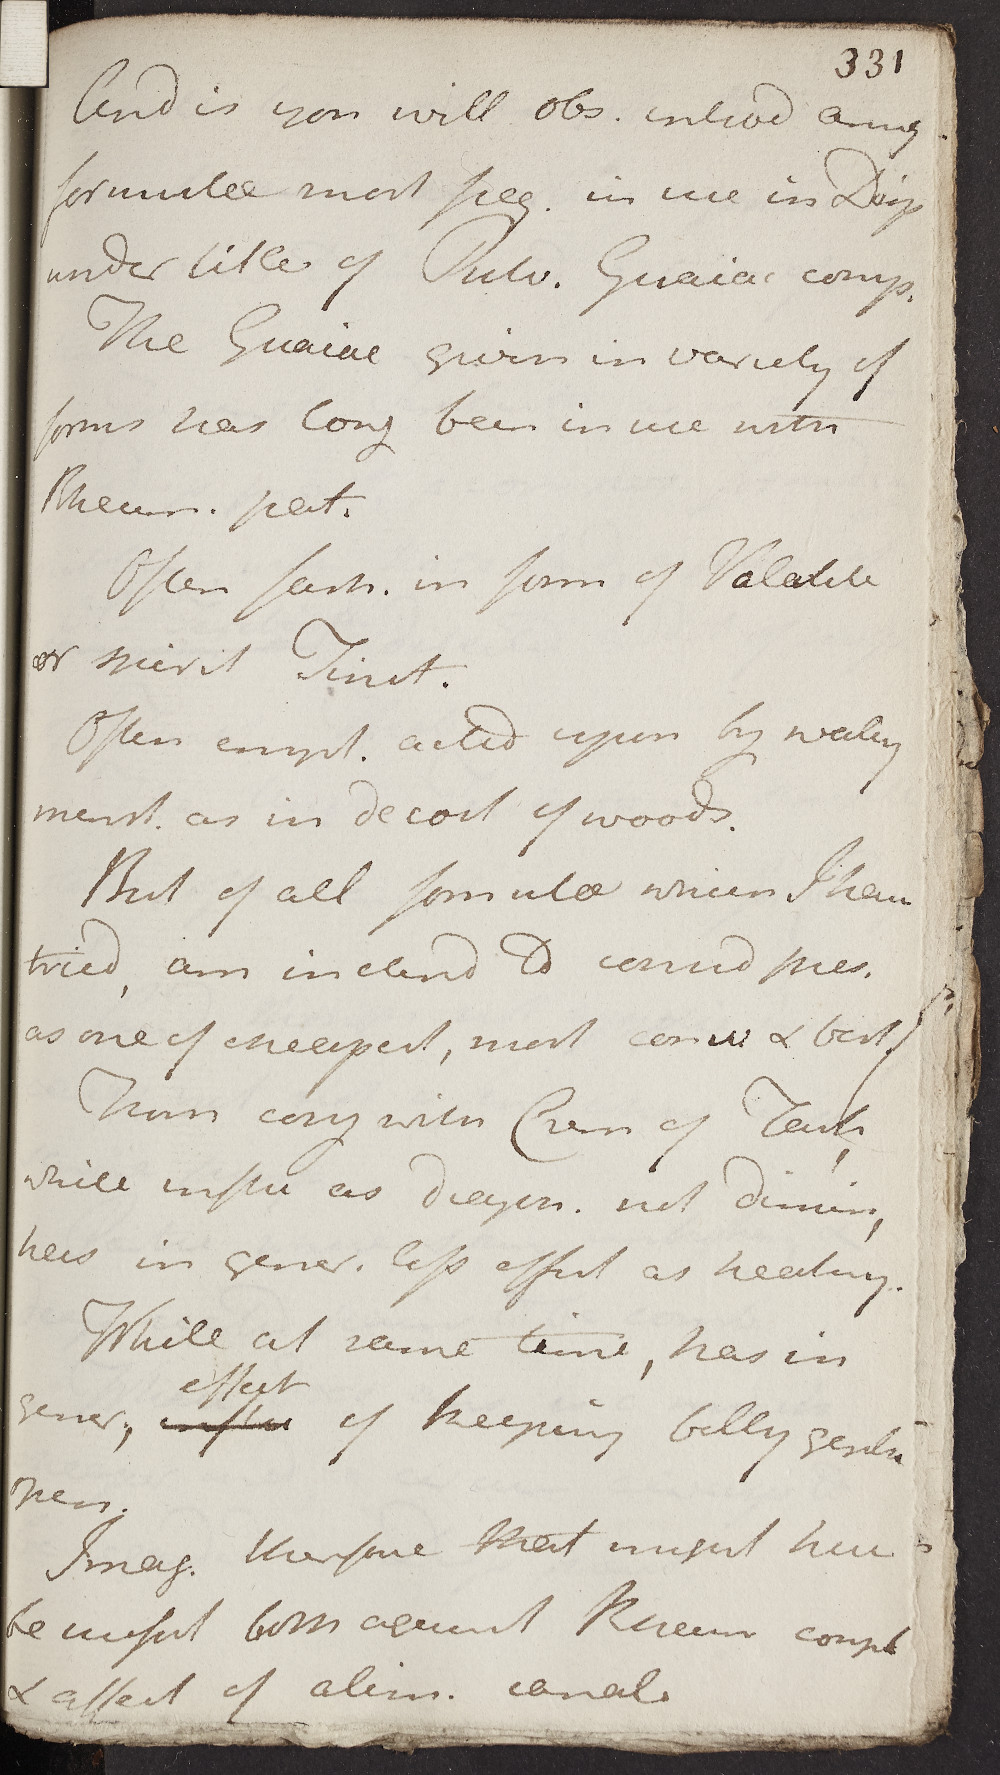 331
And is you will obs. introd among
formulae most freq. in use in Disp
under title of Pulv. Guaiac comp.
The Guaiac given in variety of
forms has long been in use with
Rheum. pat.
Often part. in form of Volatile
or spirit Tinct.
Often empl. acted upon by watery
menst. as in decoct of woods.
But of all formulae which I have
tried, am inclend to consid pres.
as one of cheapest, most conv & best.
Thrown comg with Crem of Tart,
while influ as diapn. not dimin,
has in gener. less effect as heating.
While at same time, has in
gener, effect of keeping belly gently
open.
Imag. therefore that might here
be useful both against Rheum compl
& affect of alim. canal.